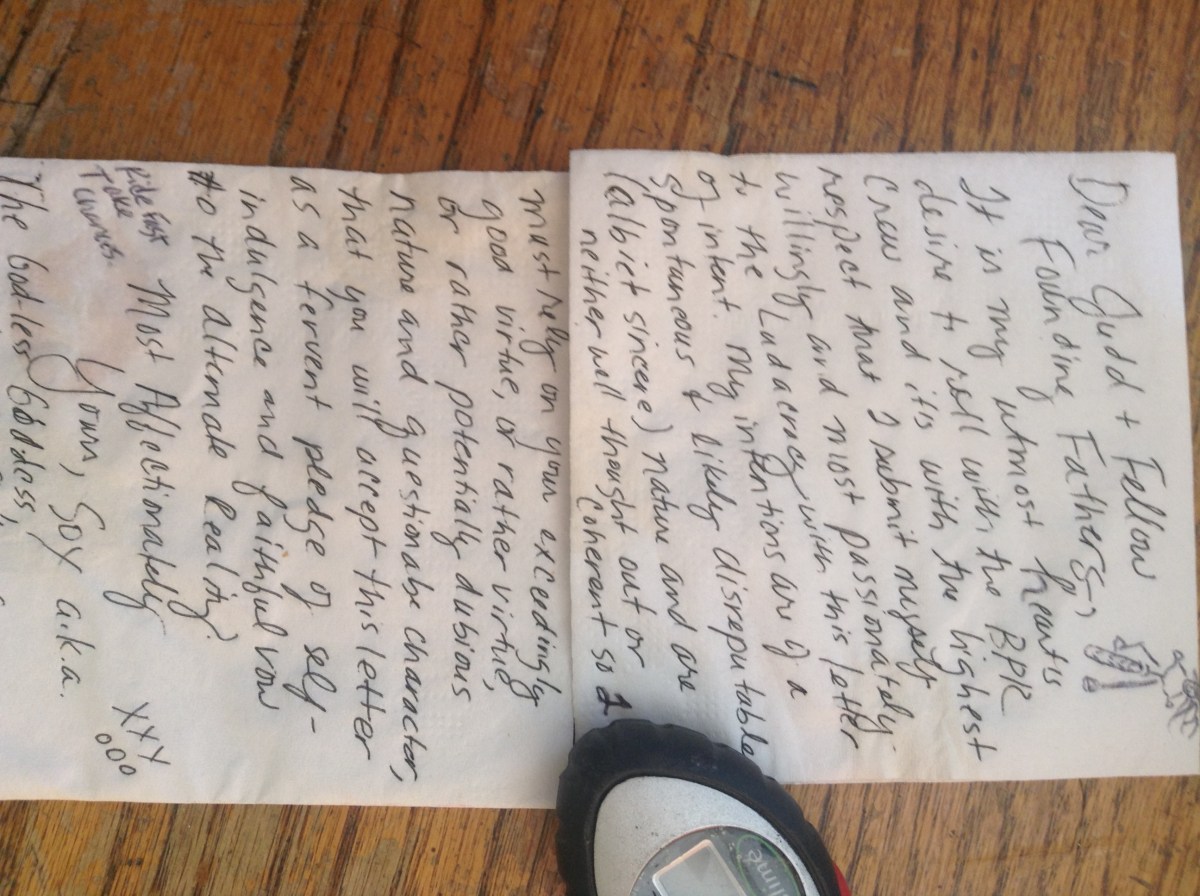 Dear Judd + Fellow
Founding Fathers,
It is my utmost hearts
desire to roll with the BPR
Crew and its with the highest
respect that I submit myself
willingly and most passionately
to the Ludacracy with this letter
of intent. My intentions are of a
spontaneous & likely disreputable
(albiet sincere) nature and are
neither well thought out or
coherent so I
must rely on your exceeding
good virtue, or rather virtue,
or rather potentially dubious
nature and questionabe character,
that you will accept this letter
as a fervent pledge of self-
indulgence and faithful vow
to the alternate Reality.
Most Affectionately
Yours, Soy a.k.a.
The God-less Goddess,
Ride Fast
Take
Turns.
XXX
OOO